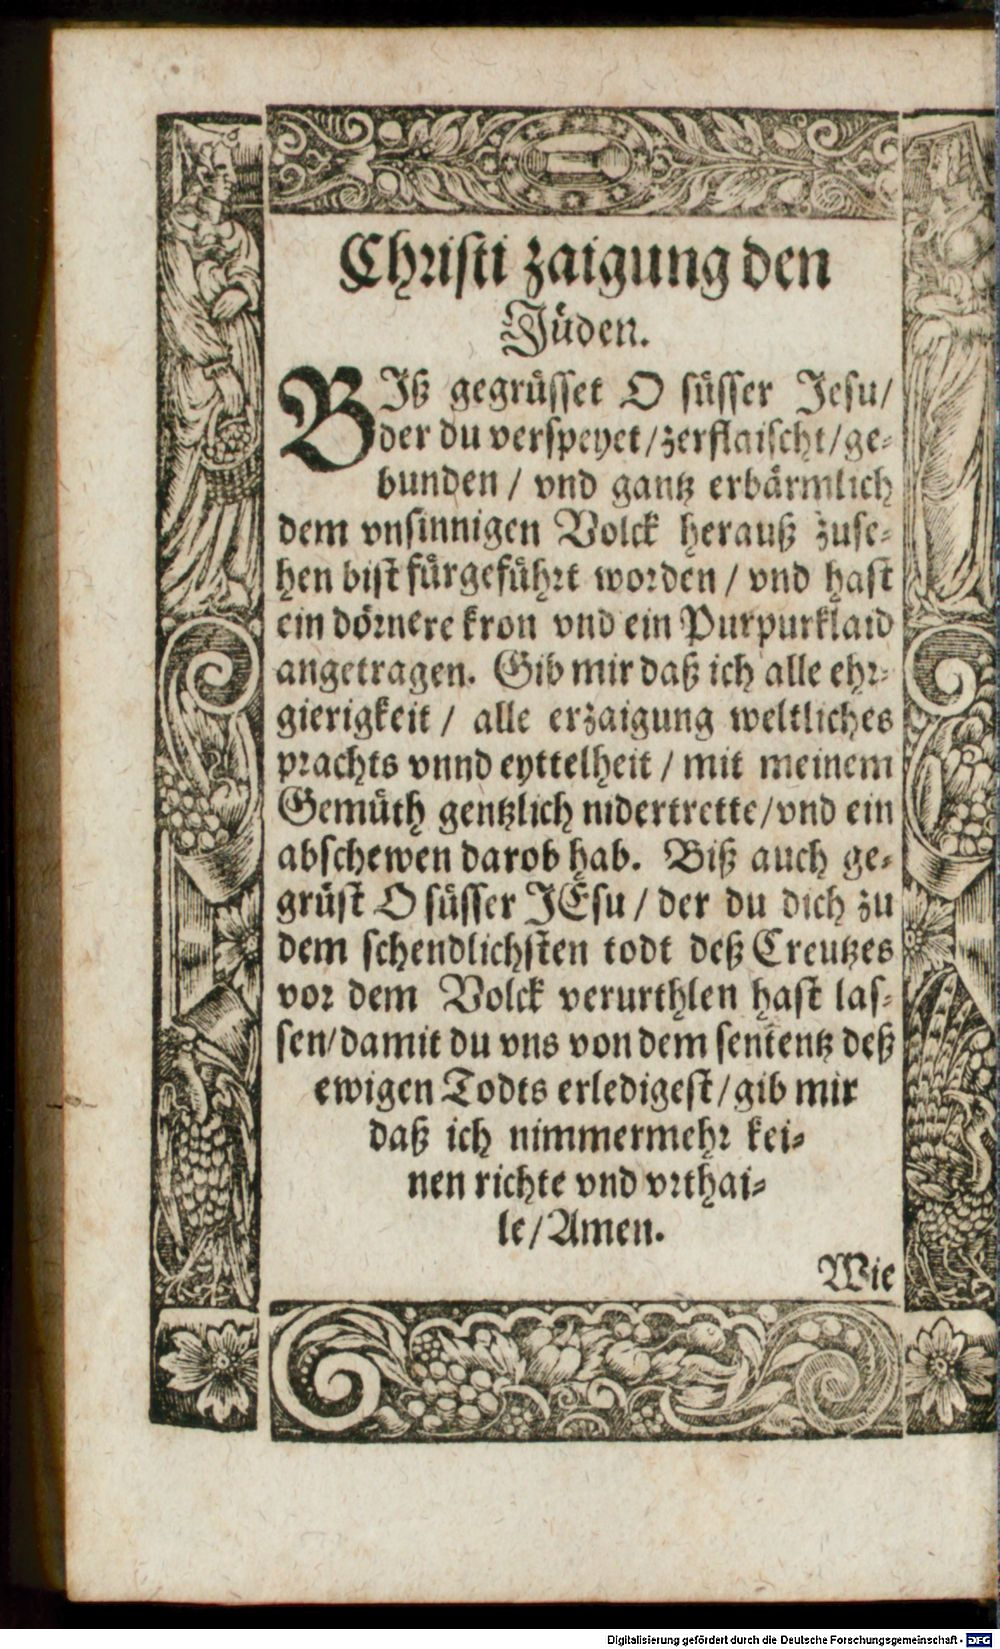 Christi zaigung den
Jüden.
BIß gegrüsset O süsser Jesu/
der du verspeyet/zerflaischt/ge-
bunden / vnd gantz erbärmlich
dem vnsinnigen Volck herauß zuse-
hen bist fürgeführt worden / vnd hast
ein dörnere kron vnd ein Purpurklaid
angetragen. Gib mir daß ich alle ehr-
gierigkeit / alle erzaigung weltliches
prachts vnnd eyttelheit / mit meinem
Gemüth gentzlich nidertrette/vnd ein
abschewen darob hab. Biß auch ge-
grüst O süsser JEsu / der du dich zu
dem schendlichsten todt deß Creutzes
vor dem Volck verurthlen hast las-
sen/damit du vns von dem sententz deß
ewigen Todts erledigest/gib mir
daß ich nimmermehr kei-
nen richte vnd vrthai-
le/Amen.
Wie
Digitalisierung gefördert durch die Deutsche Forschungsgemeinschaft - DFG